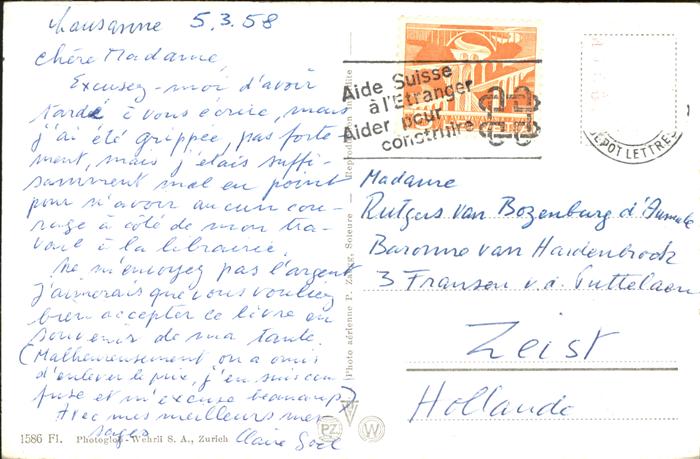 Lausanne 5.3.58
Chère Madame,
Excusez-moi d'avoir
tardé à vous écrire, mais
j'ai été grippée, pas forte-
ment, mais j'étais suffi-
samment mal en point
pour n'avoir aucun cou-
rage à côté de mon tra-
vail à la librairie.
Ne m'envoyez pas l'argent
j'aimerais que vous vouliez
bien accepter ce livre en
souvenir de ma tante.
(Malheureusement on a omis
d'enlever le prix, j'en suis con-
fuse et m'excuse beaucoup)
Avec mes meilleurs mes-
sages Claire
1586 Fl. Photoglob-Wehrli S. A., Zurich
Photo aérienne P. Zaugg, Soleure — Reproduction
PZ W
Aide Suisse
à l'Etranger
Aider pour
construire
DEPOT LETTRES
Madame
Rutgers van Rozenburg d'Aumale
Baronne van Hardenbroek
3 Fransen v.d. Puttelaan
Zeist
Hollande